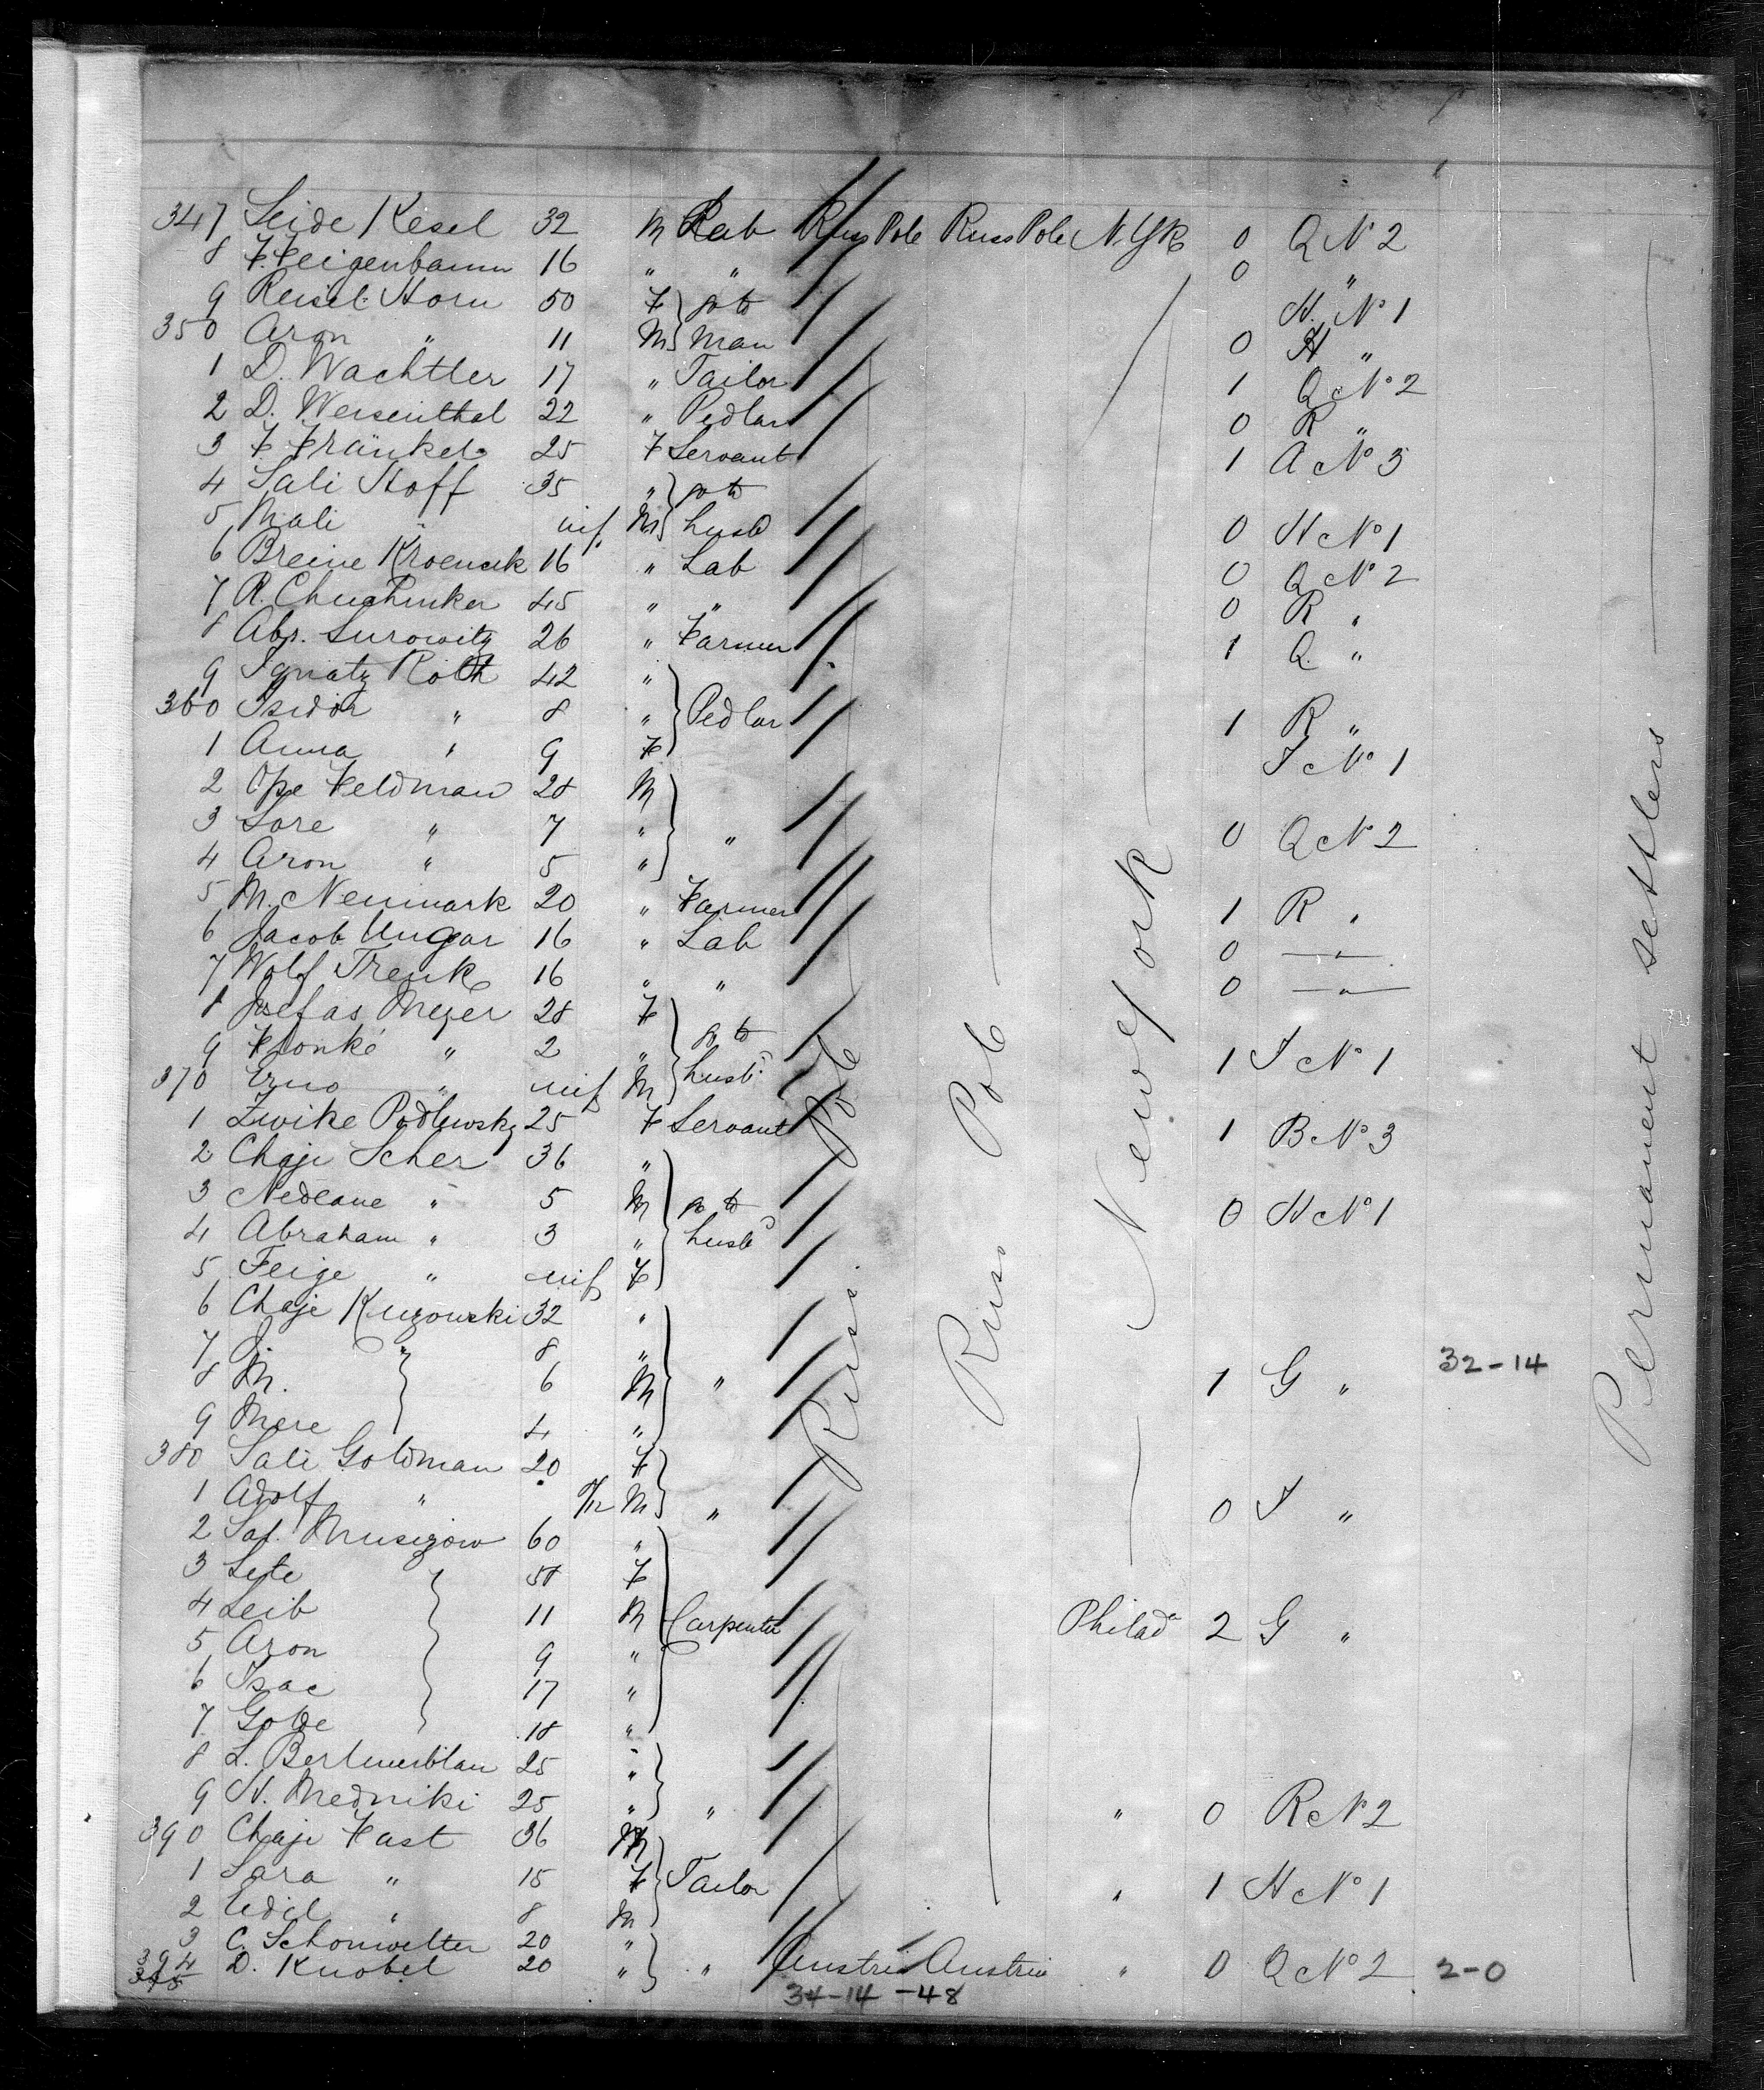 347 Seide Kesel 32 M Lab Russ Pole Russ Pole N.Yk 0 Q No 2
8 F. Feigenbaum 16 " " 0 "
9 Reisel Horn 50 F } go to H. No 1
350 Aron " 11 M } man 0 H "
1 D. Wachtler 17 " Tailor 1 Q No 2
2 D. Weisenthal 22 " Pedlar 0 R "
3 F. Fränkel 25 F Servant 1 A No 3
4 Sali Hoff 35 " } go to
5 Mali " inf M } husb 0 H No 1
6 Breine 16 " Lab 0 Q No 2
7 R. 45 " " 0 R "
8 Abr. Surowitz 26 " Farmer 1 Q "
9 Ignatz Roth 42 "
360 Isidor " 8 " } Pedlar 1 R "
1 Anna " 9 F I No 1
2 Ope Feldman 28 M
3 Sore " 7 " } " 0 Q No 2
4 Aron " 5 "
5 M. Neumark 20 " Farmer 1 R "
6 Jacob Ungar 16 " Lab 0 "
7 Wolf Trenk 16 " " 0 "
8 Josefas Meyer 28 F
9 Fronke " 2 " } go to 1 I No 1
370 " inf M husb
1 Zwike Podlewsky 25 F Servant 1 B No 3
2 Chaje Scher 36 "
3 Nedeane " 5 M } go to 0 H No 1
4 Abraham " 3 " husb
5 Feige " inf F
6 Chaje Kurowski 32 "
7 J. " 8 "
8 M. 6 M } " 1 G " 32-14
9 Mere 4 "
380 Sali Goldman 20 F
1 Adolf " M } " 0 I "
2 Sal. 60 "
3 Lete 58 F
4 Leib 11 M } Carpenter Philad 2 G "
5 Aron 9 "
6 Isac 17 "
7 Golde 18 "
8 L. 25 "
9 H. Medniki 25 " } " " 0 R No 2
390 Chaje Fast 36 M
1 Sara " 15 F } Tailor " 1 H No 1
2 Edil " 8 M
3 C. Schonwetter 20 "
394 D. Knobel 20 " } " Austria Austria " 0 Q No 2 2-0
395
34-14-48
Russ Pole
Russ Pole
New York
Permanent settlers